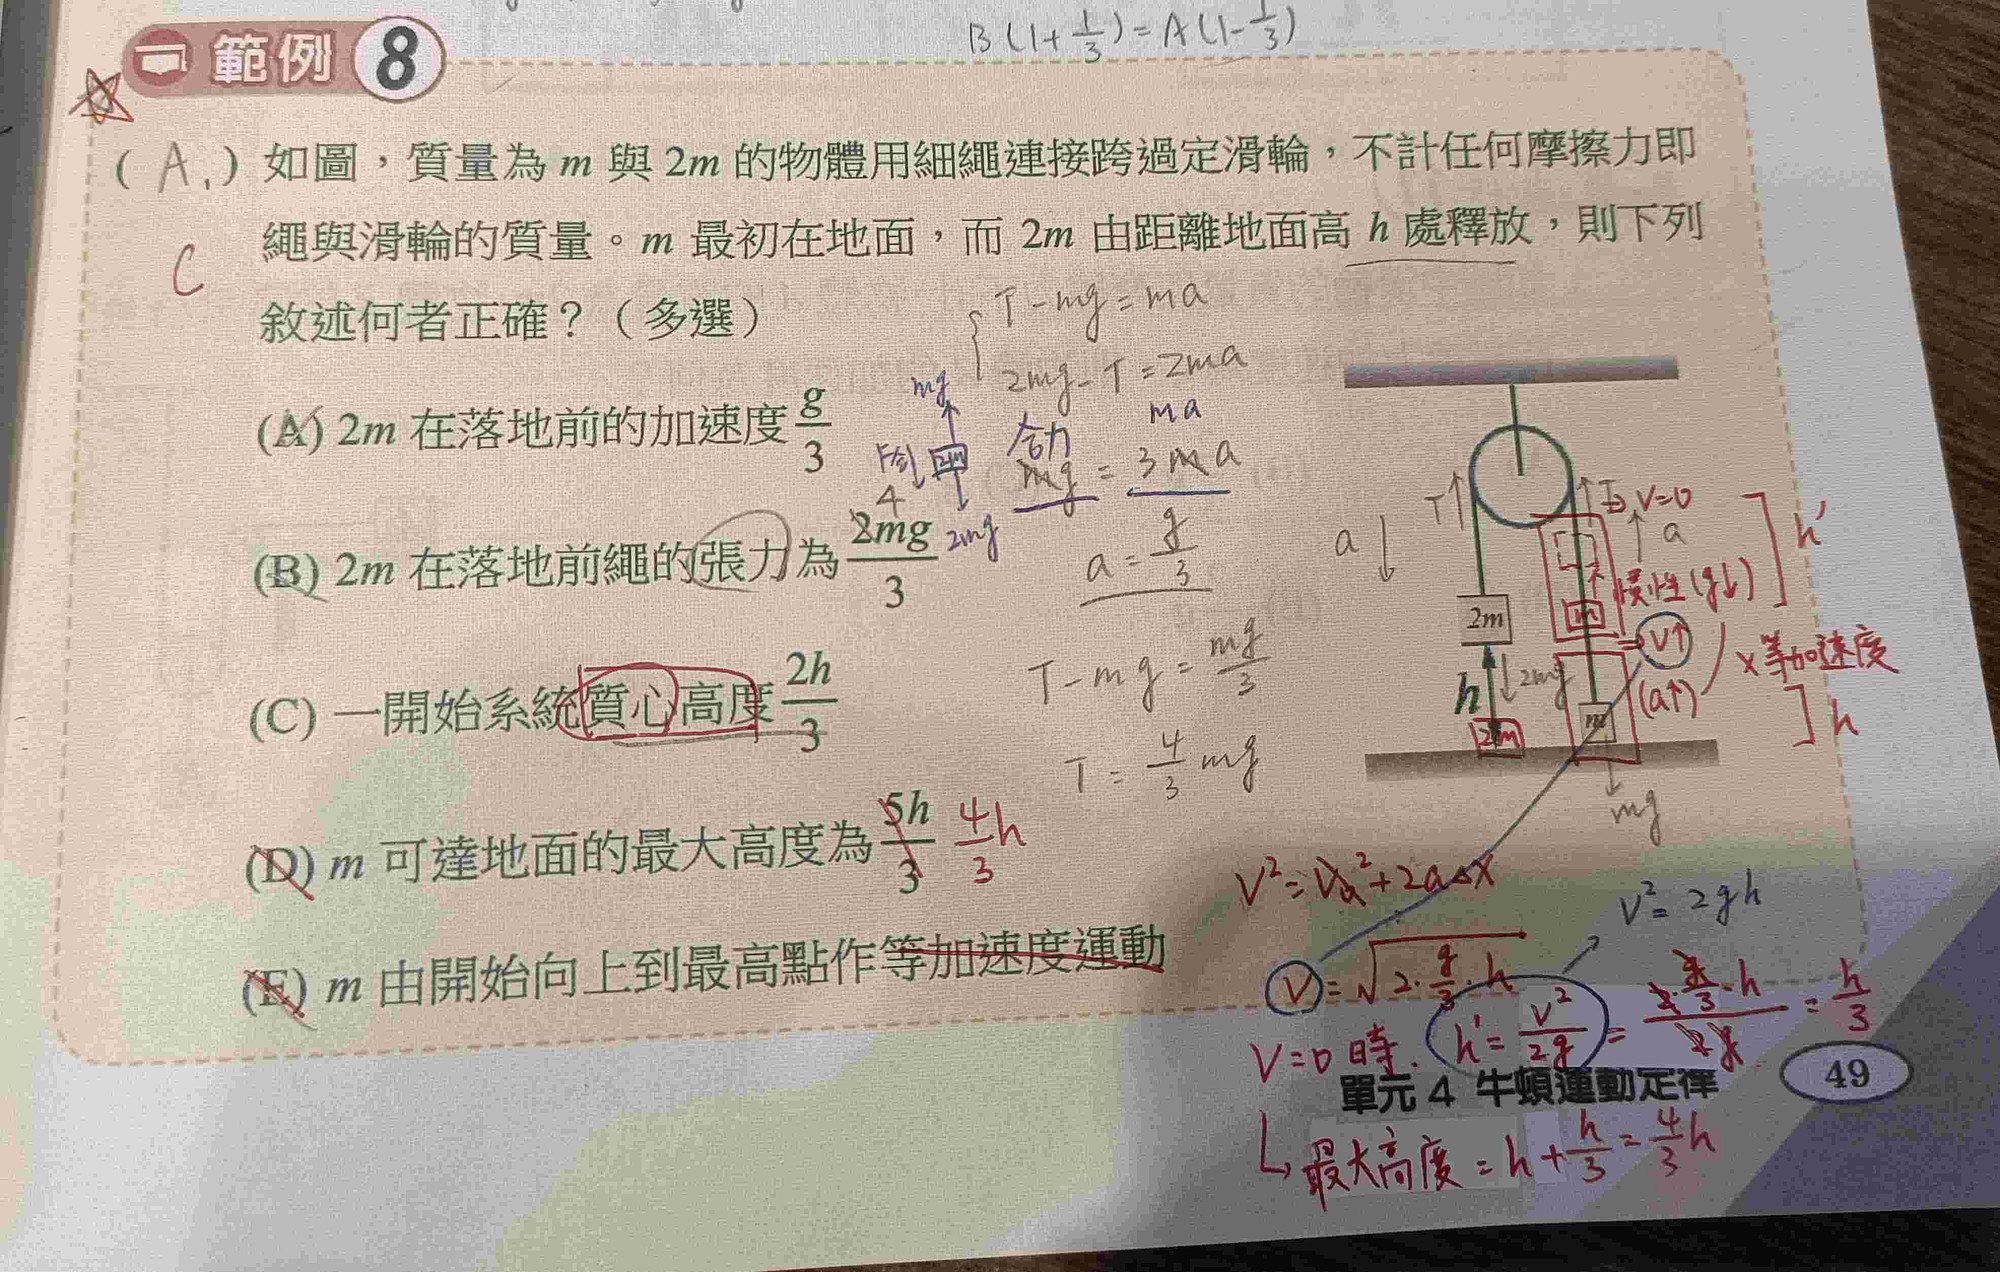 B(1+1/3)=A(1-1/3)
範例 8
(A.) 如圖，質量為 m 與 2m 的物體用細繩連接跨過定滑輪，不計任何摩擦力即
C 繩與滑輪的質量。m 最初在地面，而 2m 由距離地面高 h 處釋放，則下列
敘述何者正確？（多選）
T-mg=ma
2mg-T=2ma
(A) 2m 在落地前的加速度 g/3
mg
2m
2mg
合力
ma
mg=3ma
a=g/3
(B) 2m 在落地前繩的張力為 2mg/3
4
T-mg=mg/3
T=4/3 mg
(C) 一開始系統質心高度 2h/3
(D) m 可達地面的最大高度為 5h/3 4/3 h
(E) m 由開始向上到最高點作等加速度運動
a
T
V=0
a
h'
慣性(g↓)
2m
m
V↑
x等加速度
h
2mg
(a↑)
h
2m
m
mg
V²=V₀²+2aΔX
V²=2gh
V=√(2·g/3·h)
V=0時. h'=V²/2g=(2·g/3·h)/2g=h/3
單元 4 牛頓運動定律 49
最大高度=h+h/3=4/3 h